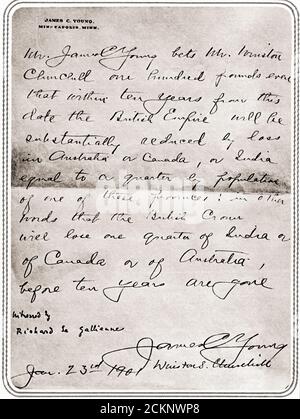 JAMES C. YOUNG.
MINNEAPOLIS, MINN.
Mr. James C Young bets Mr. Winston
Churchill one hundred pounds even
that within ten years from this
date the British Empire will be
substantially reduced by loss
in Australia or Canada, or India
equal to a quarter by population
of one of these provinces: in other
words that the British Crown
will lose one quarter of India or
of Canada or of Australia,
before ten years are gone
Witnessed by
Richard Le Gallienne
James C Young
Jan. 23rd 1901 Winston S. Churchill
alamy
Image ID: 2CKNWP8
www.alamy.com